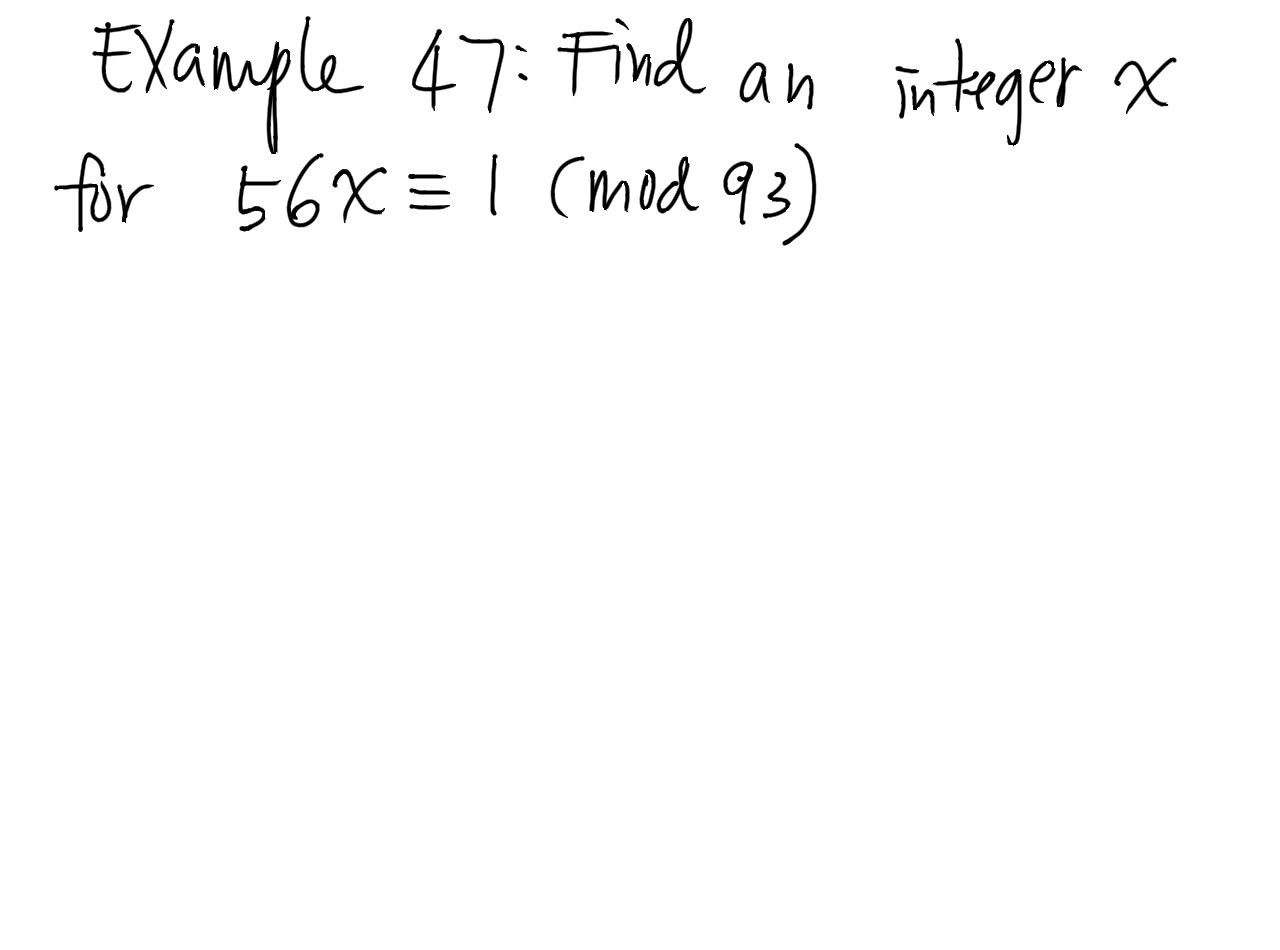 Example 47: Find an integer x
for 56x ≡ 1 (mod 93)